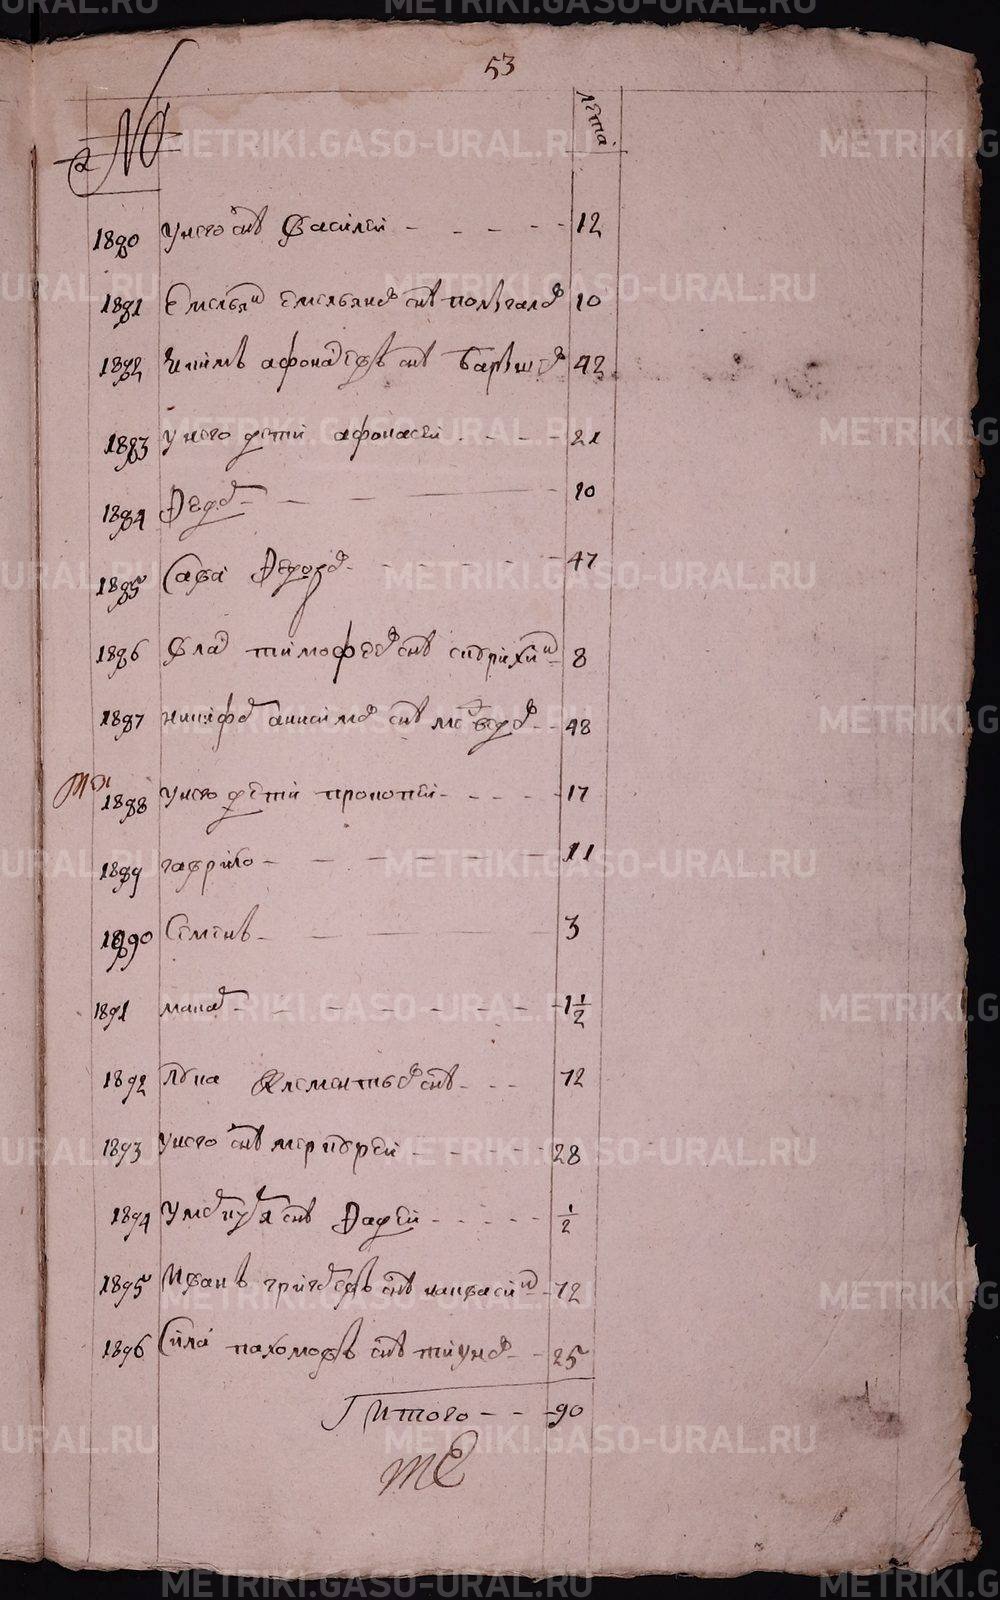 53
№ лѣта
1880 У него снъ Василей 12
1881 Емельян Емельянов снъ 10
1882 Екимъ Афонасевъ снъ 42
1883 У него дети Афонасей 21
1884 Федор 10
1885 Сава Федоров 47
1886 Влас Тимофеев снъ 8
1887 Никифор Анисимов снъ Медведев 48
1888 У него дети Прокопей 17
1889 Гаврило 11
1890 Семенъ 3
1891 Макар 1 1/2
1892 Лука Клементьев снъ 72
1893 У него снъ Меркурей 28
1894 У Меркурья снъ Фадей 1/2
1895 Иванъ Григорьевъ снъ 72
1896 Сила Пахомовъ снъ Тиунов 25
Итого 90
METRIKI.GASO-URAL.RU